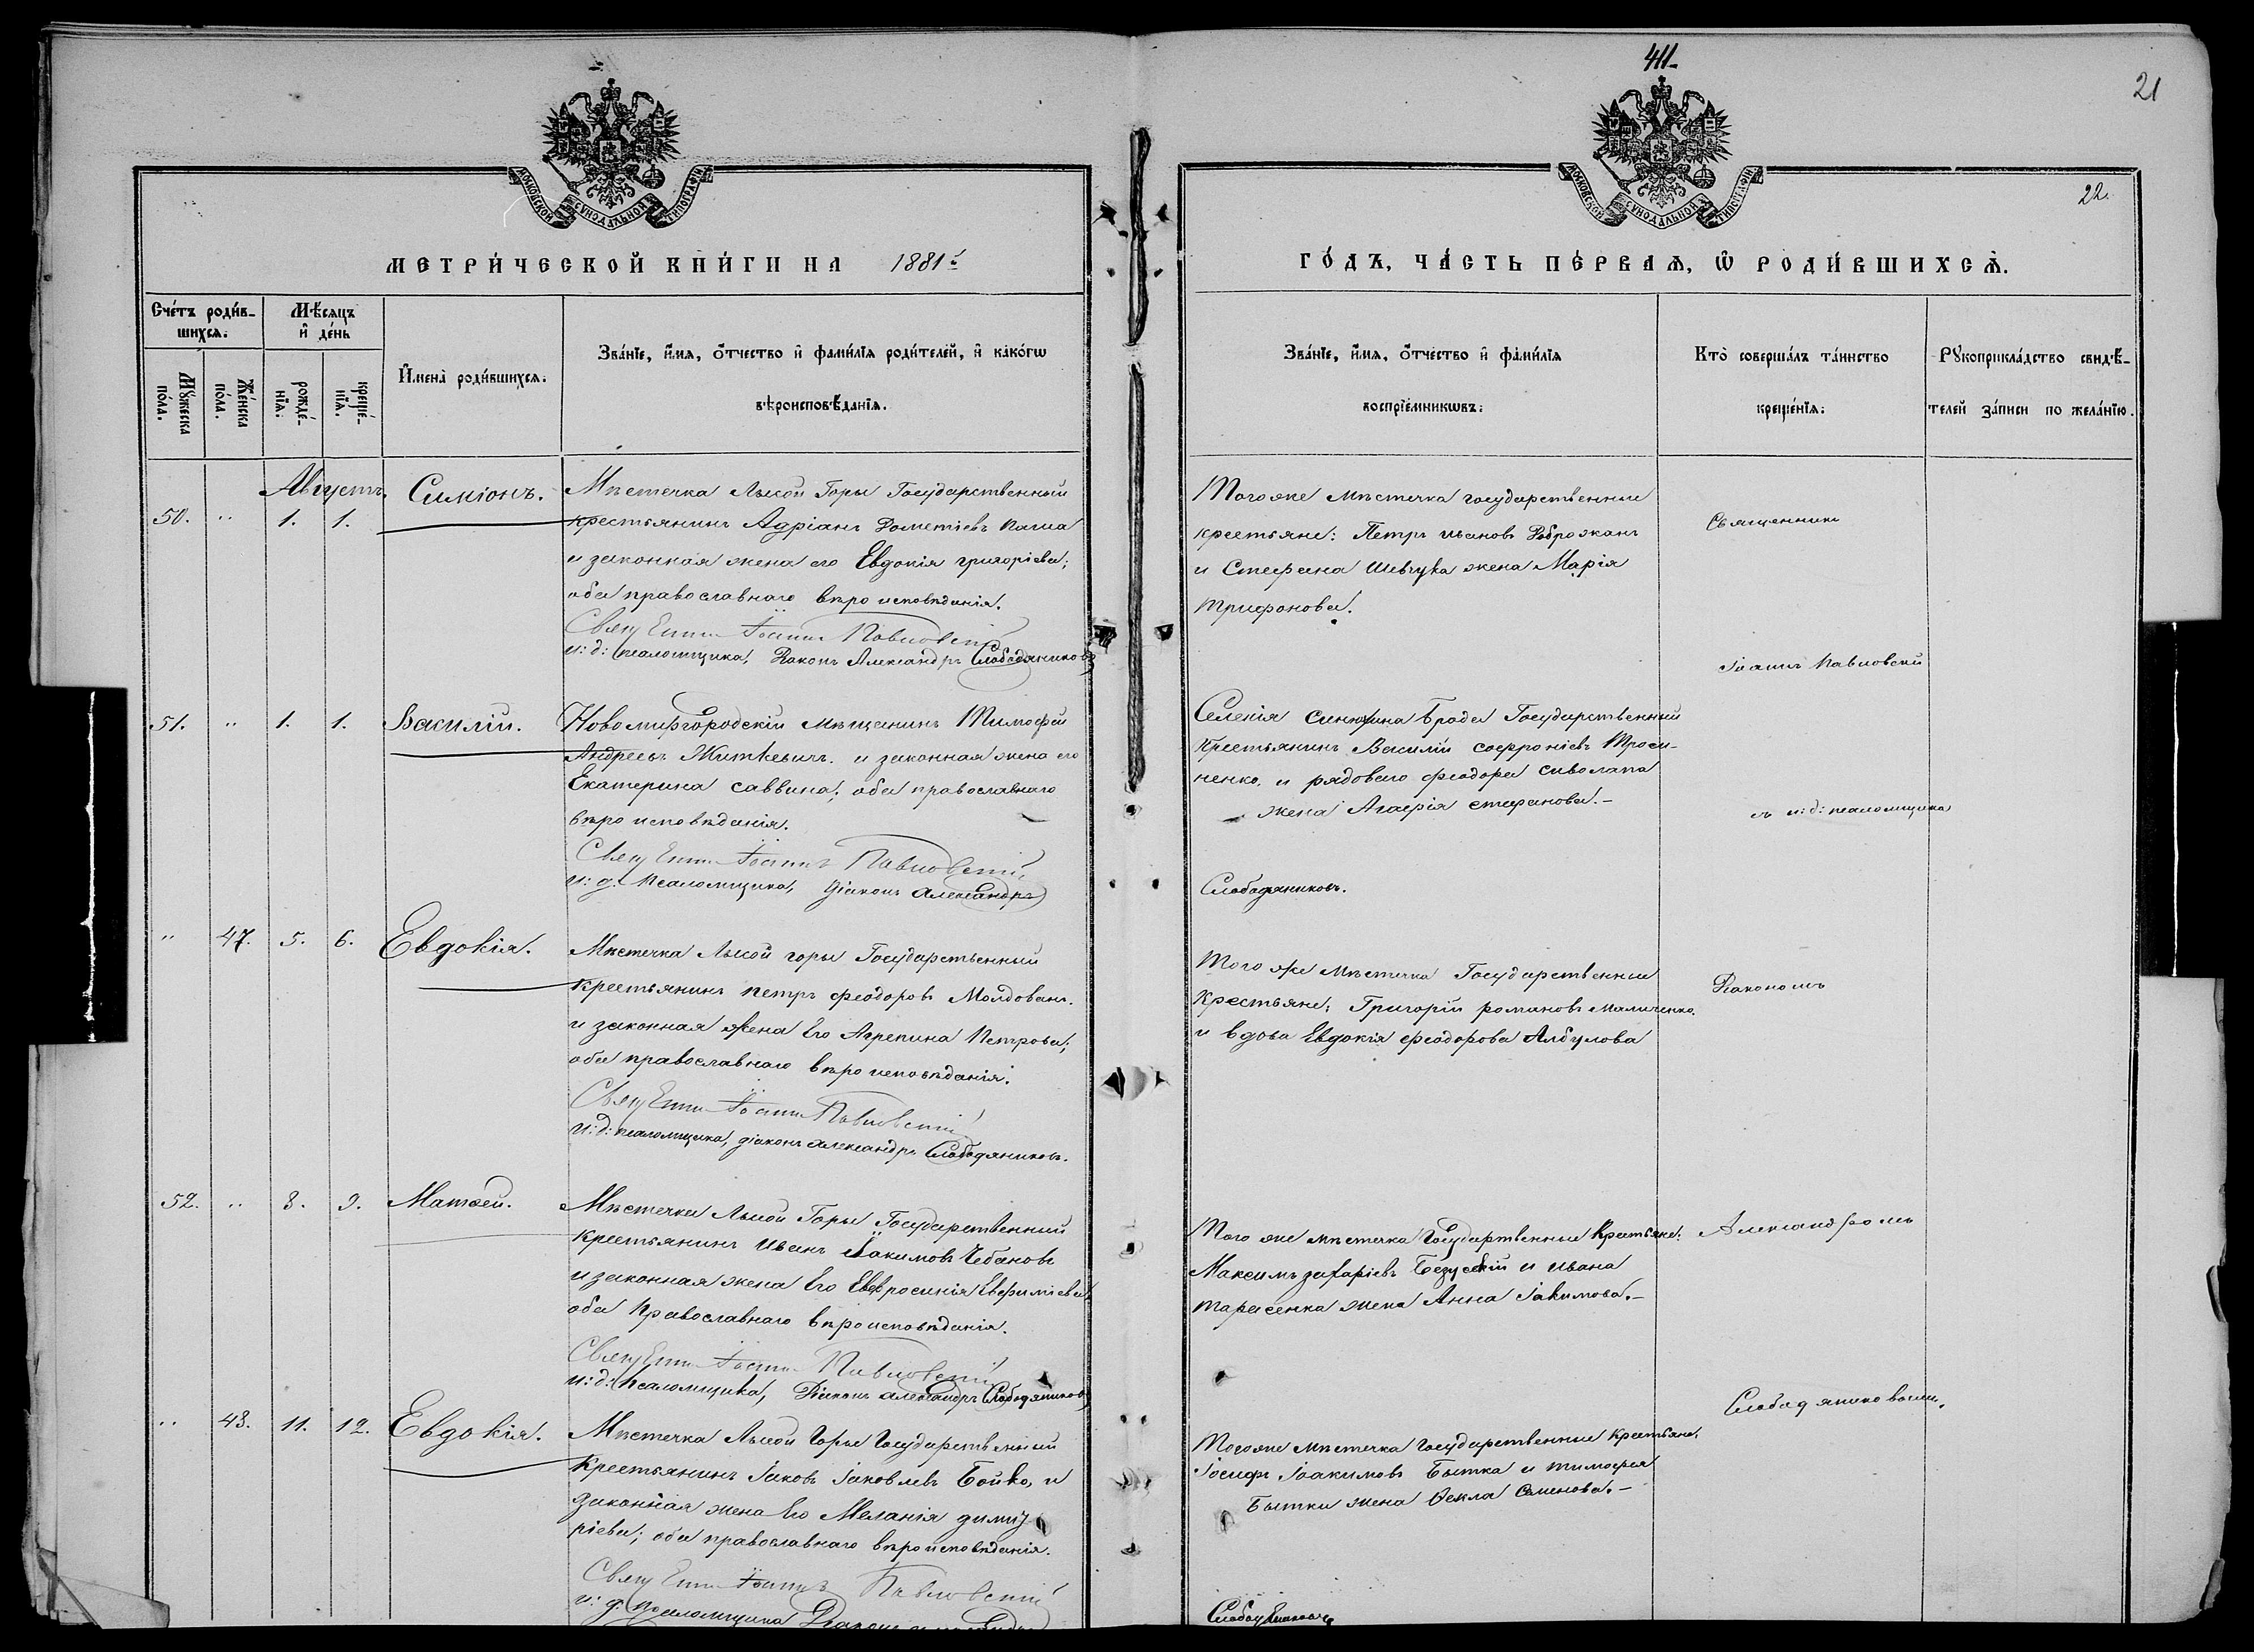 411
21
22.
МОСКОВСКОЙ СѴНОДАЛЬНОЙ ТИПОГРАФІИ
МОСКОВСКОЙ СѴНОДАЛЬНОЙ ТИПОГРАФІИ
МЕТРИ́ЧЕСКОЙ КНИ́ГИ НА 1881й
ГО́ДЪ, ЧА́СТЬ ПЕ́РВАѦ, Ѡ РОДИ́ВШИХСѦ.
Сче́тъ роди́в-
шихсѧ.
Мѣ́сѧцъ
и҆ де́нь
Мꙋ́жеска
по́ла.
Же́нска
по́ла.
рожде́-
нїѧ.
креще́-
нїѧ.
И҆мена̀ роди́вшихсѧ.
Зва́нїе, и҆́мѧ, ѻ҆́тчество и҆ фами́лїѧ роди́телей, и҆ како́гѡ
вѣроисповѣ́данїѧ.
Зва́нїе, и҆́мѧ, ѻ҆́тчество и҆ фами́лїѧ
воспрїе́мникѡвъ.
Кто̀ соверша́лъ та́инство
креще́нїѧ.
Рꙋкоприкла́дство свидѣ́-
телей за́писи по жела́нїю.
Августъ
50. " 1. 1. Симіонъ.
Мѣстечка Лысой Горы Государственный
крестьянинъ Адріанъ Дометіевъ Паша
и законная жена его Евдокія григоріева;
оба православнаго вѣроисповѣданія.
Священникъ Іоаннъ Павловскій
и: д: псаломщика, Діаконъ Александръ Слободяниковъ
Того же мѣстечка государственные
крестьяне: Петръ ивановъ Доброжанъ
и Стефана Шевчука жена Марія
Трифонова.
Священникъ
Іоаннъ Павловскій
51. " 1. 1. Василій.
Новомиргородскій мѣщанинъ Тимофей
Андреевъ Житкевичъ. и законная жена его
Екатерина саввина; оба православнаго
вѣроисповѣданія.
Священникъ Іоаннъ Павловскій,
и: д: псаломщика, діаконъ Александръ
Слободяниковъ.
Селенія синюхина Брода Государственный
крестьянинъ Василій софроніевъ Троси-
ненко, и рядоваго феодора сиволапа
жена Агафія стефанова.–
съ и: д: псаломщика
" 47. 5. 6. Евдокія.
Мѣстечка Лысой горы Государственный
крестьянинъ петръ феодоровъ Молдованъ.
и законная жена его Агрепина Петрова;
оба православнаго вѣроисповѣданія.
Священникъ Іоаннъ Павловскій
и: д: псаломщика, діаконъ александръ Слободяниковъ.
Того же мѣстечка Государственные
Крестьяне: Григорій романовъ Маличенко.
и вдова Евдокія феодорова Албулова
Діакономъ
52. " 8. 9. Матѳей.
Мѣстечка Лысой Горы Государственный
крестьянинъ Иванъ Іоакимовъ Чебановъ
и законная жена его Евфросинія Евфиміева
оба Православнаго вѣроисповѣданія.
Священникъ Іоаннъ Павловскій
и: д: псаломщика, Діаконъ александръ Слободяниковъ
Того же мѣстечка Государственные Крестьяне:
Максимъ захаріевъ Безускій и ивана
тарасенка жена Анна Іакимова.–
Александромъ
" 48. 11. 12. Евдокія.
Мѣстечка Лысой Горы Государственный
Крестьянинъ Іаковъ Іаковлевъ Бойко, и
законная жена его Меланія димит
ріева; оба православнаго вѣроисповѣданія.
Священникъ Іоаннъ Павловскій
и: д: псаломщика Діаконъ
Слободяниковъ
Того же мѣстечка Государственные Крестьяне.
Іосифъ Іоакимовъ Бытка и тимофея
Бытки жена Ѳекла Семенова.–
Слободяниковымъ.